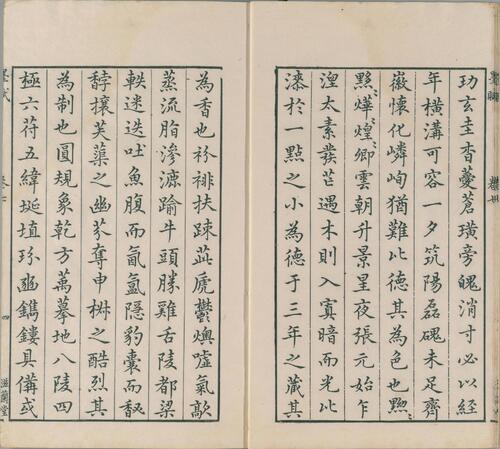 玏玄圭杳夔蒼璜旁魄消寸必以經
年橫溝可容一夕筑陽磊磈未足齊
徽懷化嶙峋猶難比德其為色也黝
黝爗煌卿雲朝升景星夜張元始乍
湼太素發芒遇木則入寘暗而光比
漆於一點之小為德于三年之藏其
為香也衯裶扶疎茈虒鬱燠噓氣歊
蒸流脂滲漉踰牛頭勝雞舌陵都梁
軼迷迭吐魚腹而氤氳隱豹囊而馝
馞攘芙蕖之幽芬奪申椒之酷烈其
為制也圓規象乾方萬摹地八陵四
極六符五緯埏埴玢豳鐫鏤具備或
卷七
四
滋蘭堂